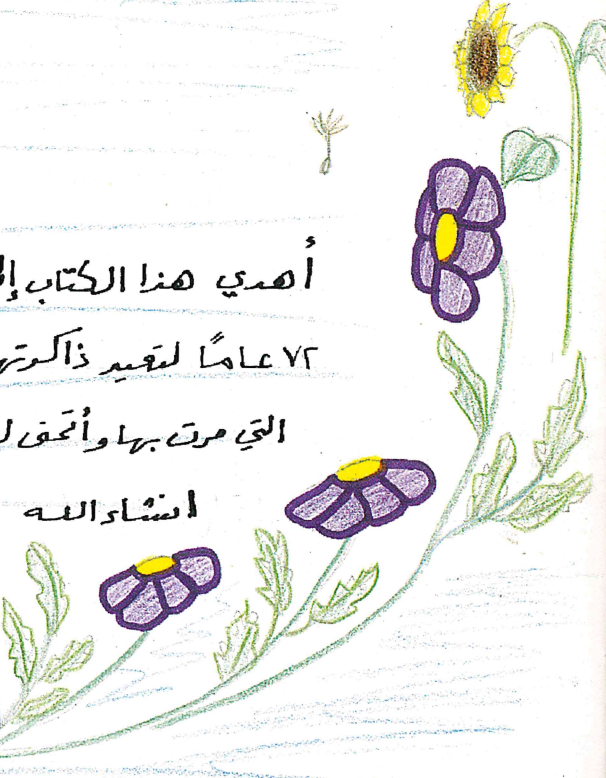 أهدي هذا الكتاب إلى
٧٢ عامًا لتعيد ذاكرتها
التي مرت بها وأتحق
انشاء الله